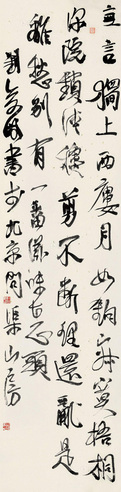 無言獨上西樓月如鉤寂寞梧桐
深院鎖清穐剪不斷理還亂是
離愁別有一番滋味在心頭
劉
書於北京問渠山房